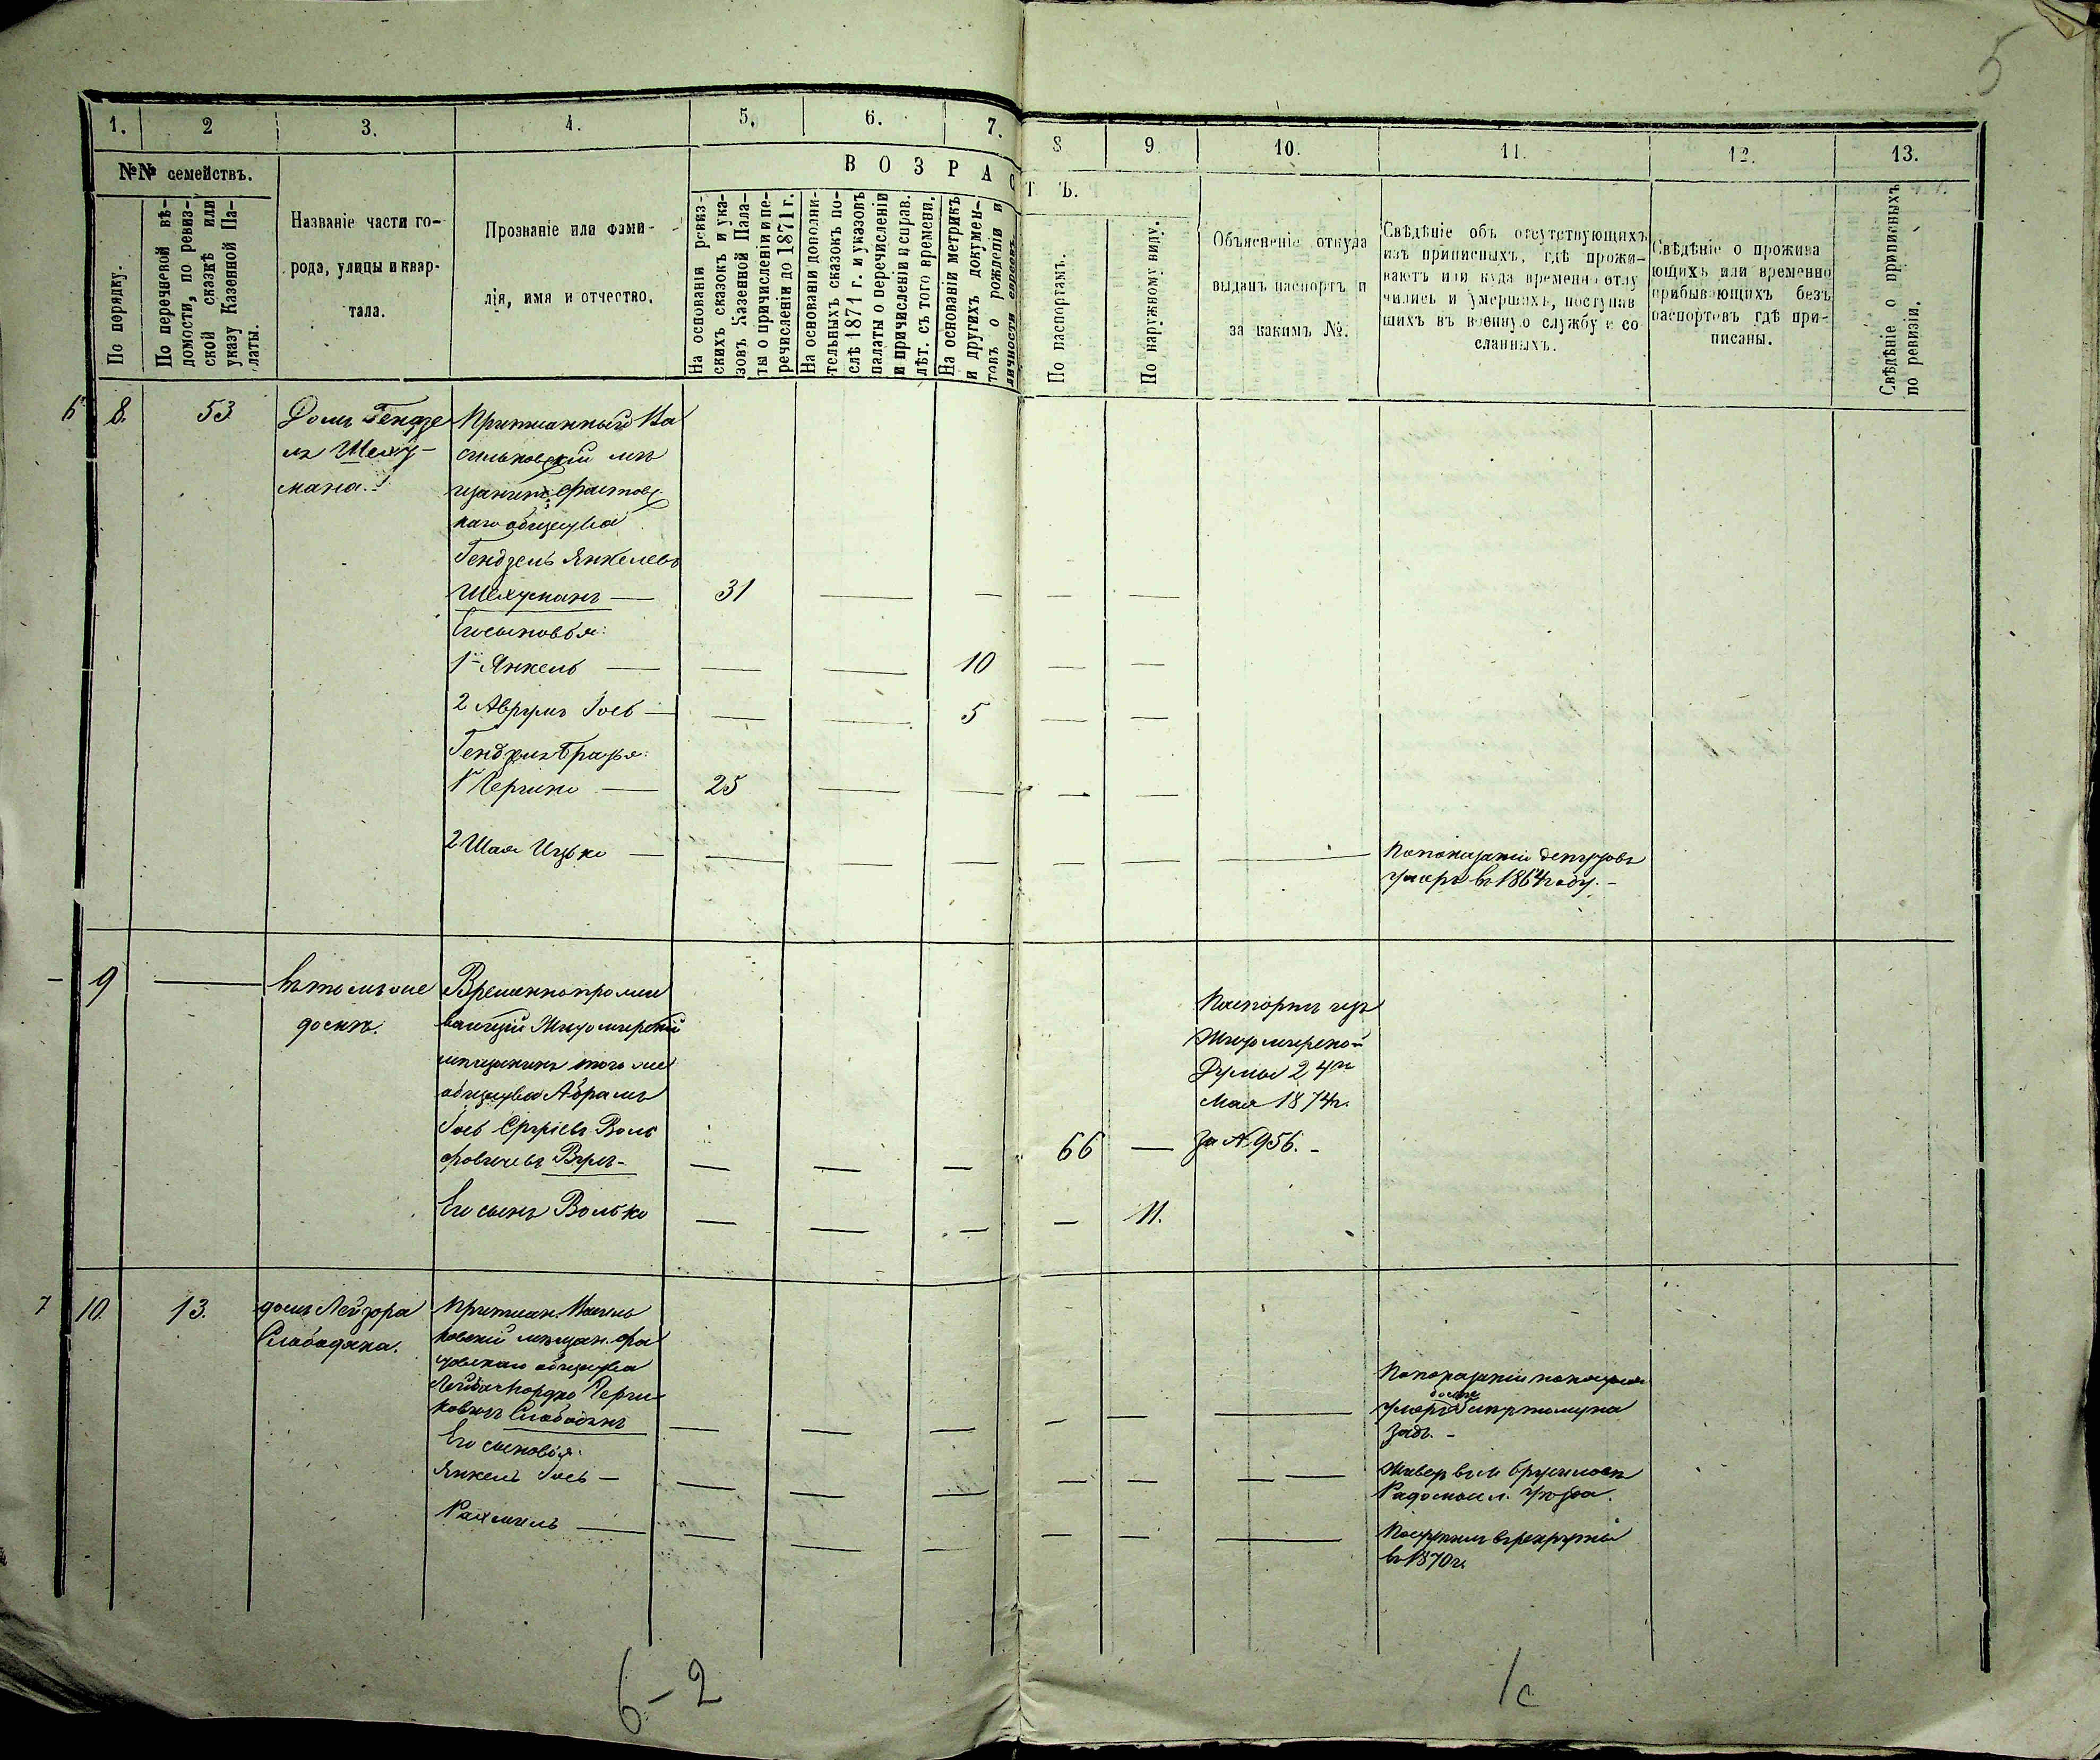 5
1. 2 3. 4. 5. 6. 7. 8 9. 10. 11. 12. 13.
№№ семействъ.
По порядку.
По перечневой вѣ-
домости, по ревиз-
ской сказкѣ или
указу Казенной Па-
латы.
Названіе части го-
рода, улицы и квар-
тала.
Прозваніе или фами-
лія, имя и отчество.
ВОЗРАСТЪ.
На основаніи ревиз-
скихъ сказокъ и ука-
зовъ Казенной Пала-
ты о причисленіи и пе-
речисленіи до 1871 г.
На основаніи дополни-
тельныхъ сказокъ по-
слѣ 1871 г. и указовъ
палаты о перечисленіи
и причисленіи и справ.
лѣт. съ того времени.
На основаніи метрикъ
и другихъ докумен-
товъ о рожденіи и
личности евреевъ
По паспортамъ.
По наружному виду.
Объясненіе откуда
выданъ паспортъ и
за какимъ №.
Свѣдѣніе объ отсутствующихъ
изъ приписныхъ, гдѣ прожи-
ваютъ или куда временно отлу
чились и умершихъ, поступив
шихъ въ военную службу и со
сланныхъ.
Свѣдѣніе о прожива
ющихъ или временно
прибывающихъ безъ
паспортовъ гдѣ при-
писаны.
Свѣдѣніе о приписныхъ
по ревизіи.
8. 53
Домъ Гендзе
ля Шеху-
мана.
Ва
сильковскій мѣ
щанинъ Фастовс
каго общества
Гендзель Янкелевъ
Шехуманъ — 31 — — — —
Его сыновья:
1й Янкель — — — 10 — —
2 Аврумъ Іось — — — 5 — —
Гендзеля братья:
1й Гершко — 25 — — — —
2 Шая Ицько — — — — — — —
По показанію депутовъ
умеръ въ 1864 году. -
- 9 —
Въ томъ же
домѣ.
Временно прожи
вающій Житомирскій
мѣщанинъ того же
общества Абрамъ
Іось Вель
фовичевъ — — — 66 —
Паспортъ изъ
Житомирской
Думы 24го
Мая 1874г.
За № 956. -
Его сынъ Волько — — — — 11.
7 10. 13.
домъ Лейзора
Слабодяна.
Василь
ковскій мѣщан. Фа
стовскаго общества
Лейба Мордко Герш
ковичъ Слабодянъ — — — — — —
По показанію
умеръ болѣе
задъ. -
Его сыновья:
Янкель Іось — — — — — — — —
Живетъ въ м. Брусиловѣ
Радомысл. уѣзда.
Рахмиль — — — — — — —
Поступилъ въ рекруты
въ 1870 г.
6-2
1с